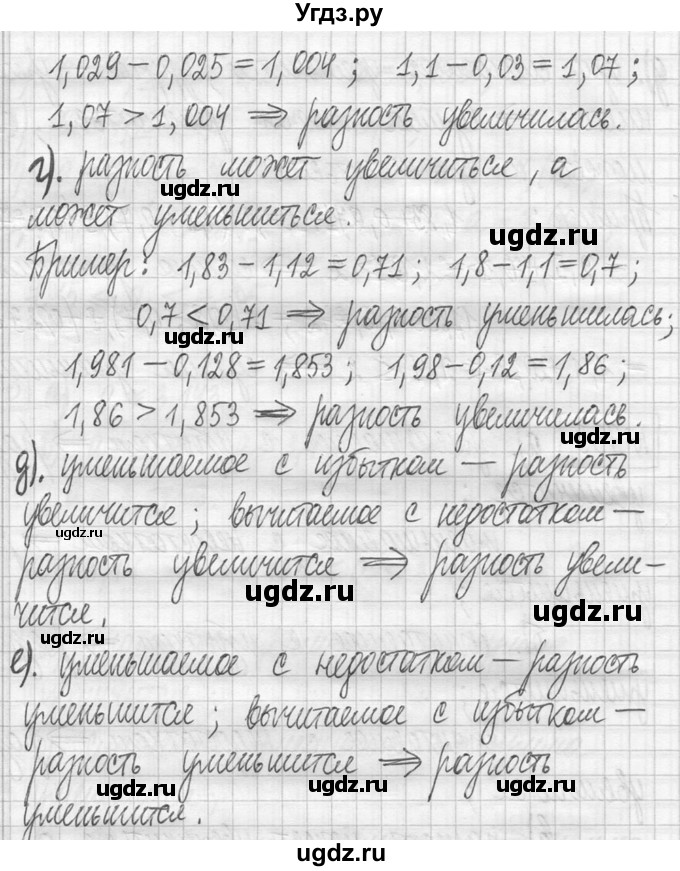 Угдз.ру
1,029 – 0,025 = 1,004 ; 1,1 – 0,03 = 1,07 ;
1,07 > 1,004 ⇒ разность увеличилась.
г). разность может увеличиться, а
ugdz.ru
может уменьшиться.
ugdz.ru
Пример: 1,83 – 1,12 = 0,71 ; 1,8 – 1,1 = 0,7 ;
0,7 < 0,71 ⇒ разность уменьшилась;
ugdz.ru
1,981 – 0,128 = 1,853 ; 1,98 – 0,12 = 1,86 ;
1,86 > 1,853 ⇒ разность увеличилась.
ugdz.ru
д). уменьшаемое с избытком — разность
увеличится ; вычитаемое с недостатком —
ugdz.ru
разность увеличится ⇒ разность увели-
ugdz.ru
чится.
ugdz.ru
ugdz.ru
е). уменьшаемое с недостатком — разность
уменьшится ; вычитаемое с избытком —
разность уменьшится ⇒ разность
ugdz.ru ugdz.ru ugdz.ru
уменьшится.
ugdz.ru